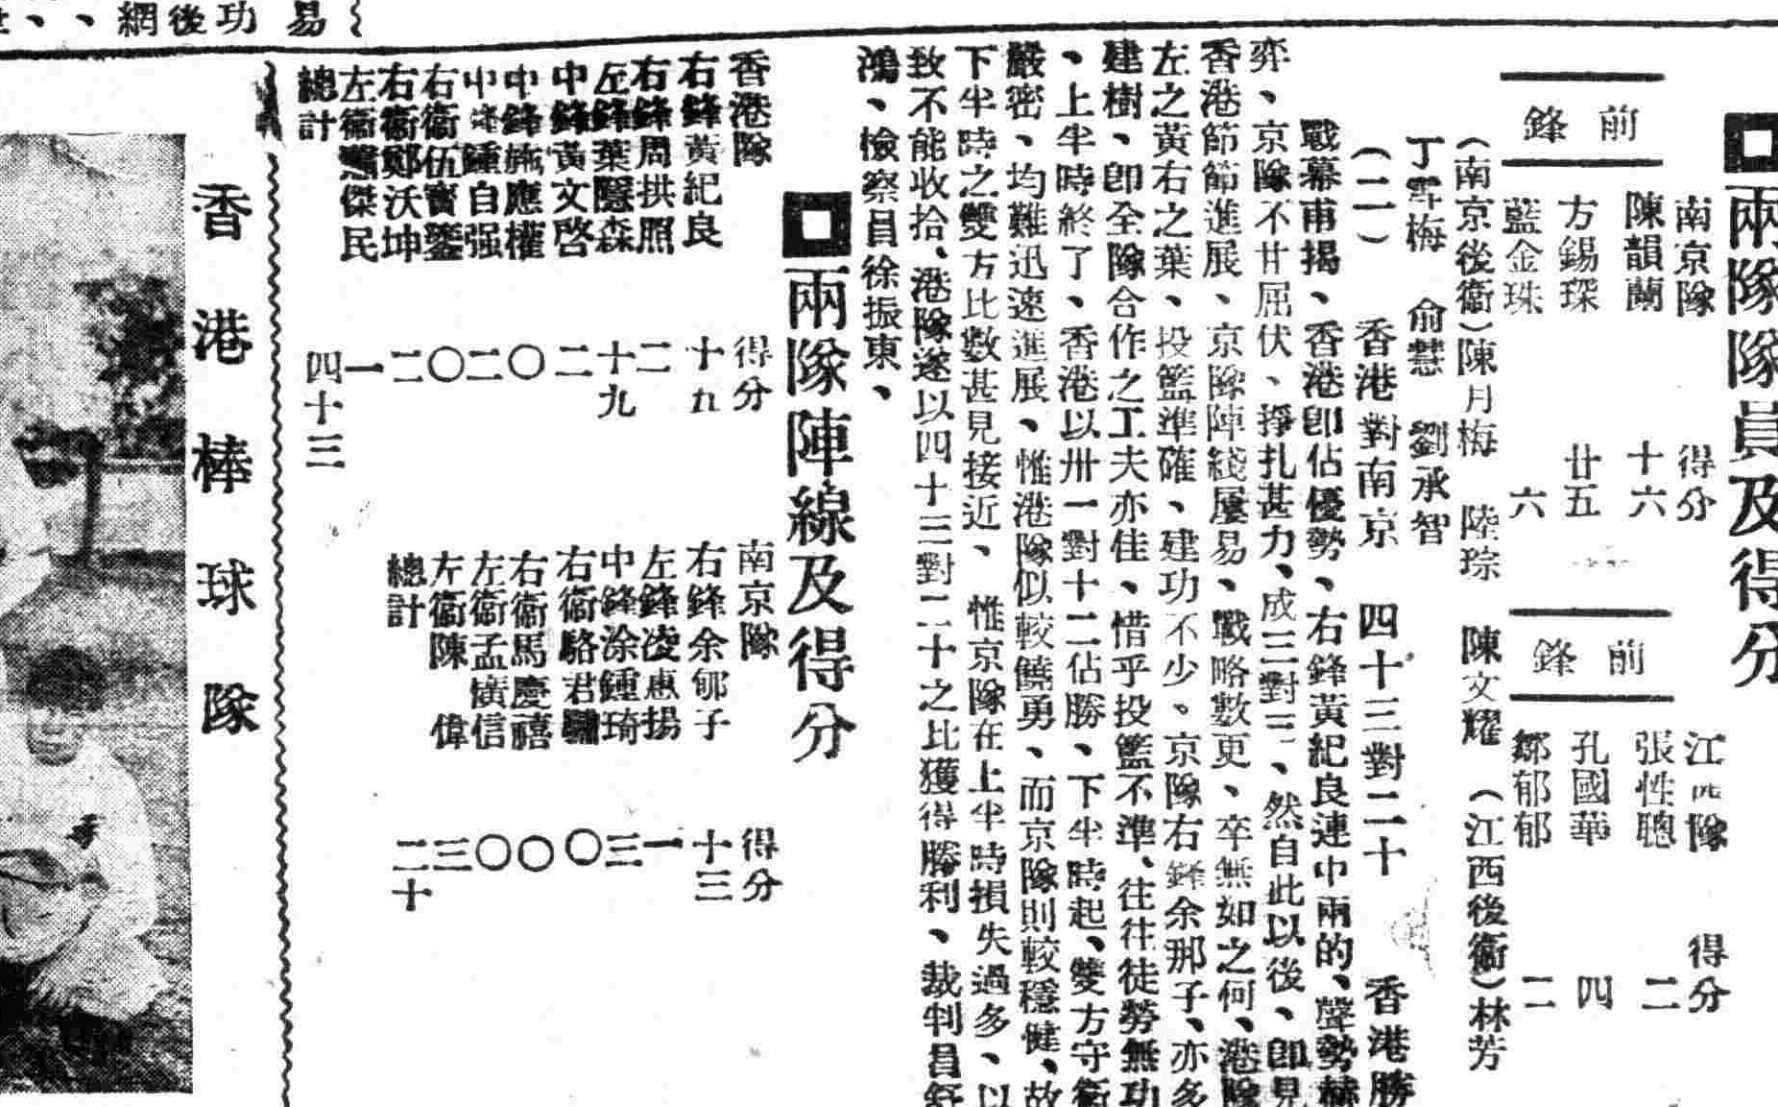 兩隊隊員及得分
南京隊 得分
陳韻蘭 十六
前鋒
方錫琛 廿五
藍金珠 六
江 隊 得分
張性聰 二
前鋒
孔國華 四
鄒郁郁 二
（南京後衞）陳月梅 陸琮 陳文耀 （江西後衞）林芳
丁雪梅 俞慧 劉承智
（二） 香港對南京 四十三對二十 香港勝
戰幕甫揭、香港卽佔優勢、右鋒黃紀良連中兩的、聲勢赫
弈、京隊不甘屈伏、掙扎甚力、成三對三、然自此以後、卽見
香港節節進展、京隊陣綫屢易、戰略數更、卒無如之何、港隊
左之黃右之葉、投籃準確、建功不少。京隊右鋒余那子、亦多
建樹、卽全隊合作之工夫亦佳、惜乎投籃不準、往往徒勞無功
、上半時終了、香港以卅一對十二佔勝、下半時起、雙方守衞
嚴密、均難迅速進展、惟港隊似較饒勇、而京隊則較穩健、故
下半時之雙方比數甚見接近、惟京隊在上半時損失過多、以
致不能收拾、港隊遂以四十三對二十之比獲得勝利、裁判員舒
鴻、檢察員徐振東、
兩隊陣線及得分
香港隊 得分
右鋒黃紀良 十九
右鋒周拱照 二
左鋒葉隱森 十九
中鋒黃文啓 二
中鋒 應權 〇
中鋒鍾自强 二
右衞伍寶鑒 〇
右衞鄭沃坤 二
左衞 傑民 一
總計 四十三
南京隊 得分
右鋒余郇子 十三
左鋒凌惠揚 一
中鋒涂鍾琦 三
右衞駱君 〇
右衞馬慶禧 〇
左衞孟廣信 〇
左衞陳 偉 三
總計 二十
香港棒球隊
易功後網、、